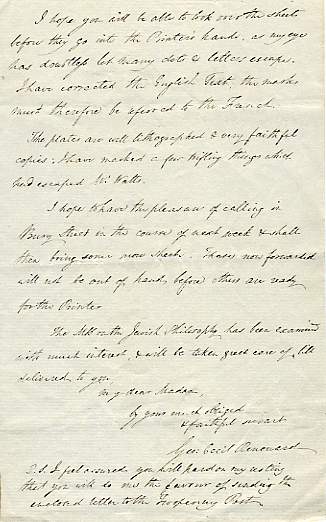 I hope you will be able to look over the sheets
before they go into the Printer's hands, as my eye
has doubtless let many dots & letters escape.
I have corrected the English Text, the marks
must therefore be referred to the French.
The plates are well lithographed & very faithful
copies. I have marked a few trifling things which
had escaped Mr Watts.
I hope to have the pleasure of calling in
Bury Street in the course of next week & shall
then bring some more sheets. Those now forwarded
will not be out of hand, before others are ready
for the Printer
The MS. on the Jewish Philosophy has been examined
with much interest, & will be taken great care of, till
delivered to you.
my dear Madam,
your much obliged
& faithful servant
Geo: Cecil Renouard
P.S. I feel assured you will pardon my
that you will do me the favour of sending the
enclosed letter to the Twopenny Post